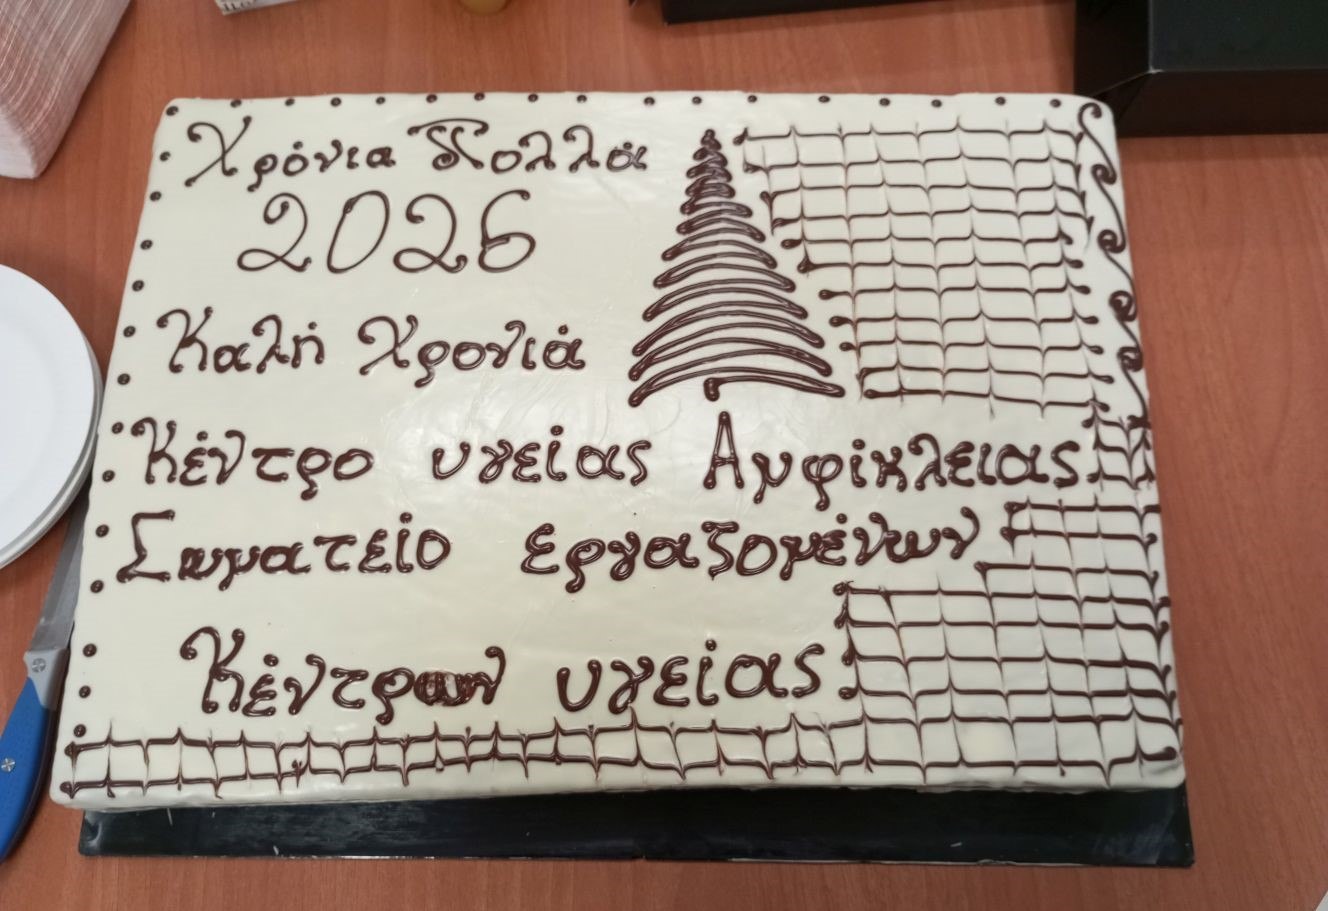 Χρόνια Πολλά
2026
Καλή Χρονιά
Κέντρο υγείας Αμφίκλειας
Σωματείο εργαζομένων
Κέντρων υγείας